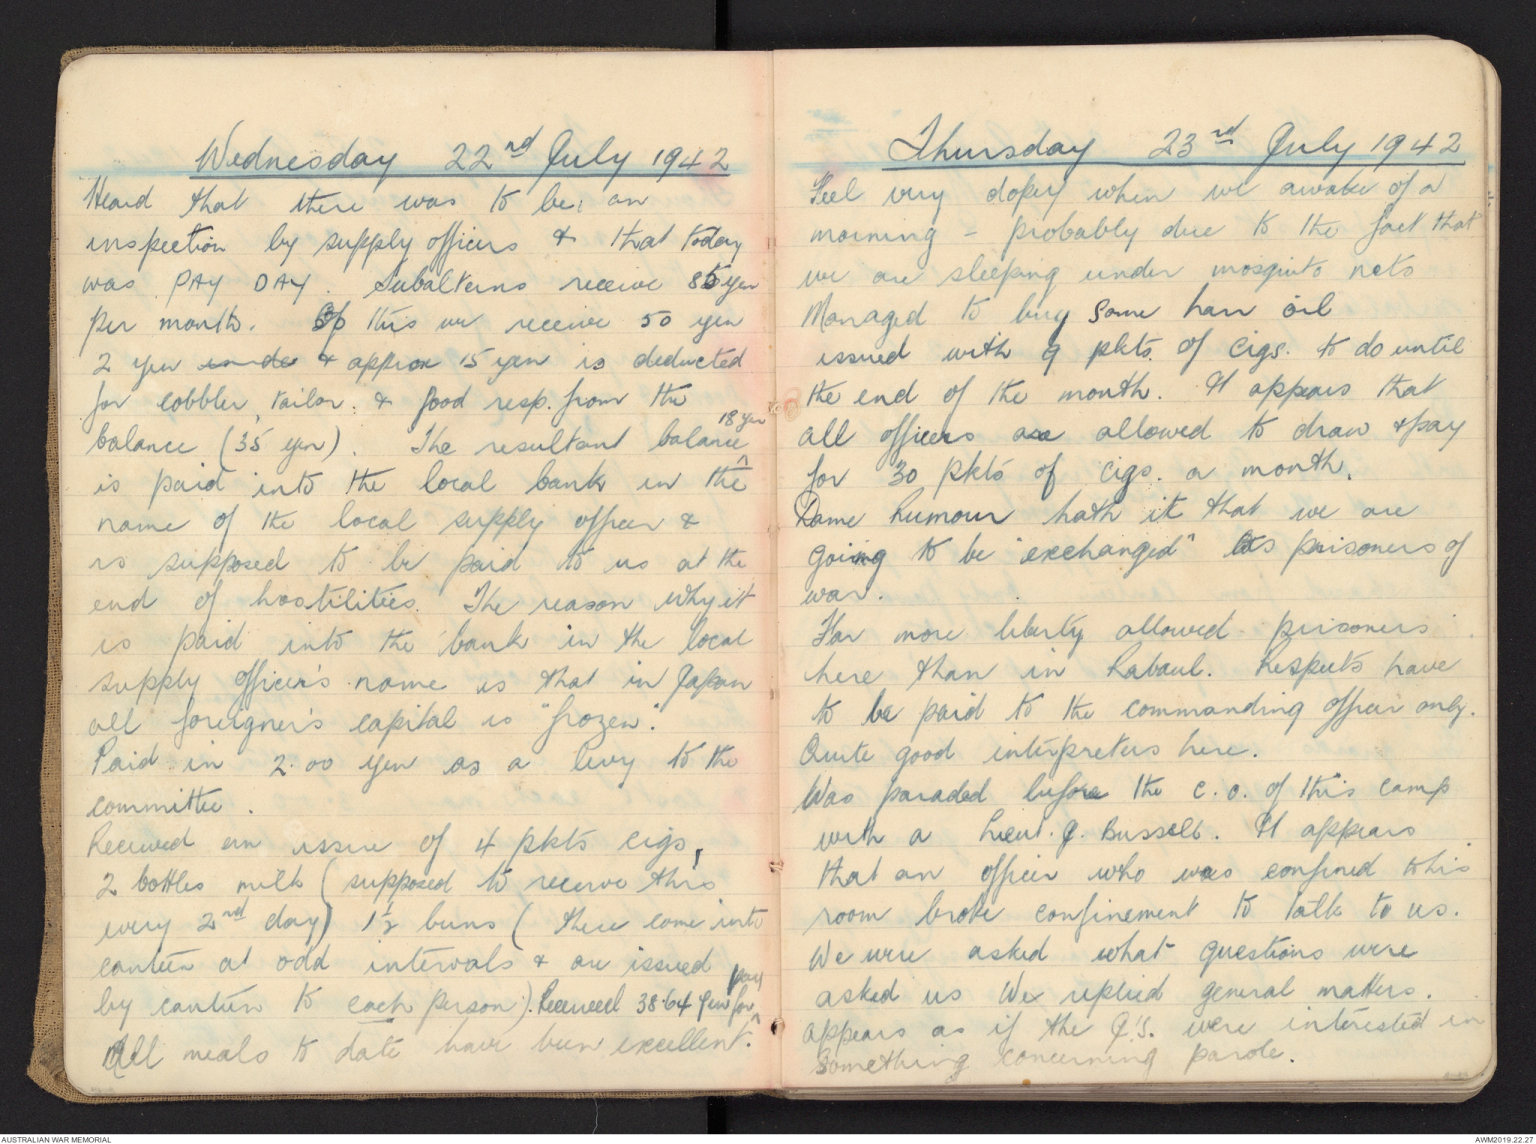 Wednesday 22nd July 1942
Heard that there was to be an
inspection by supply officers & that today
was PAY DAY. Subalterns receive 85 yen
per month. Of this we receive 50 yen
2 yen & approx 15 yen is deducted
for cobbler, tailor. & food resp. from the
18 yen
balance (35 yen). The resultant balance ^
is paid into the local bank in the
name of the local supply officer &
is supposed to be paid to us at the
end of hostilities. The reason why it
is paid into the bank in the local
supply officer's name is that in Japan
all foreigner's capital is "frozen".
Paid in 2.00 yen as a levy to the
committee.
Received an issue of 4 pkts cigs,
2 bottles milk (supposed to receive this
every 2nd day) 1½ buns (these come into
canteen at odd intervals & are issued
pay
by canteen to each person). Received 38.64 yen for ^
All meals to date have been excellent.
Thursday 23rd July 1942
Feel very dopey when we awake of a
morning - probably due to the fact that
we are sleeping under mosquito nets
Managed to buy some hair oil
issued with 9 pkts. of cigs. to do until
the end of the month. It appears that
all officers are allowed to draw & pay
for 30 pkts of cigs. a month.
Dame Rumour hath it that we are
going to be "exchanged" as prisoners of
war.
Far more liberty allowed prisoners
here than in Rabaul. Respects have
to be paid to the commanding officer only.
Quite good interpreters here.
Was paraded before the C.O. of this camp
with a Lieut. J. Bussell. It appears
that an officer who was confined to his
room broke confinement to talk to us.
We were asked what questions were
asked us We replied general matters.
appears as if the J's. were interested in
something concerning parole.
AUSTRALIAN WAR MEMORIAL
AWM2019.22.27